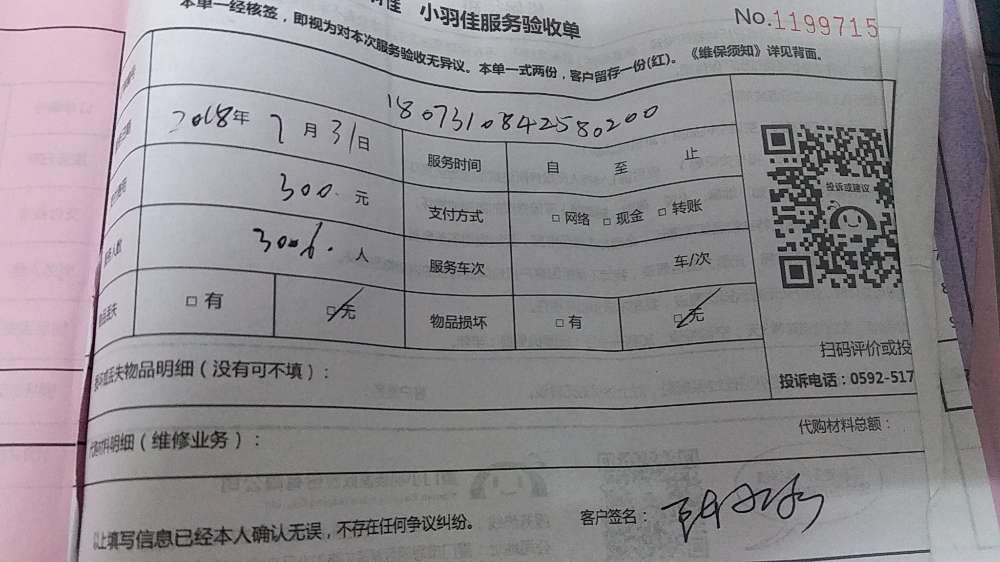 小羽佳服务验收单
No.1199715
本单一经核签，即视为对本次服务验收无异议。本单一式两份，客户留存一份(红)。《维保须知》详见背面。
180731084258020​0
2018年 7月 31日 服务时间 自 至 止
300. 元 支付方式 □网络 □现金 □转账
人 服务车次 车/次
□有 □无 物品损坏 □有 □无
投诉或建议
扫码评价或投
投诉电话：0592-517
丢失物品明细（没有可不填）：
材料明细（维修业务）：
代购材料总额：
以上填写信息已经本人确认无误，不存在任何争议纠纷。
客户签名：